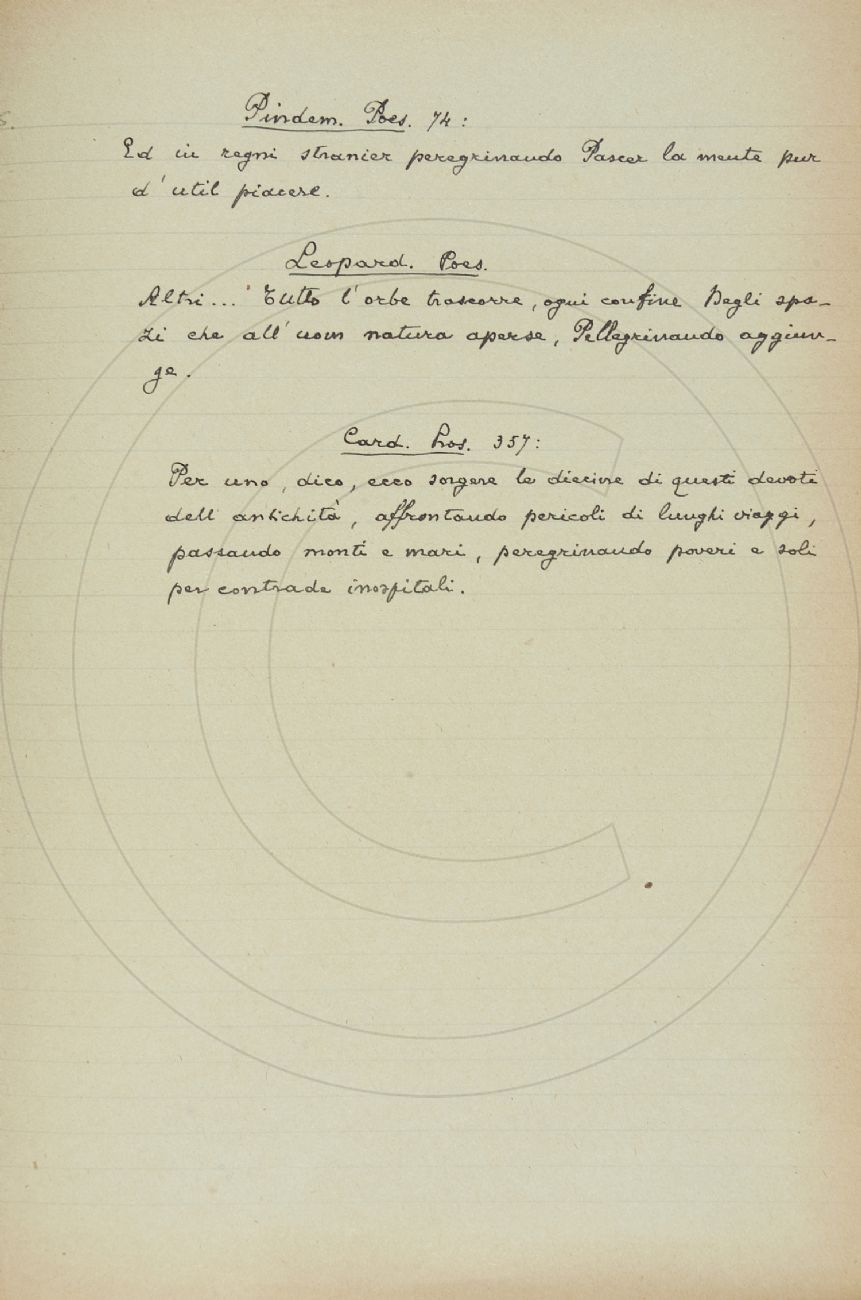 Pindem. Poes. 74:
Ed in regni stranier peregrinando Pascer la mente pur
d'util piacere.
Leopard. Poes.
Altri... Tutto l'orbe trascorre, ogni confine Degli spa-
zi che all'uom natura aperse, Pellegrinando aggiun-
ge.
Card. Pros. 357:
Per uno, dico, ecco sorgere le diecine di questi devoti
dell'antichità, affrontando pericoli di lunghi viaggi,
passando monti e mari, peregrinando poveri e soli
per contrade inospitali.